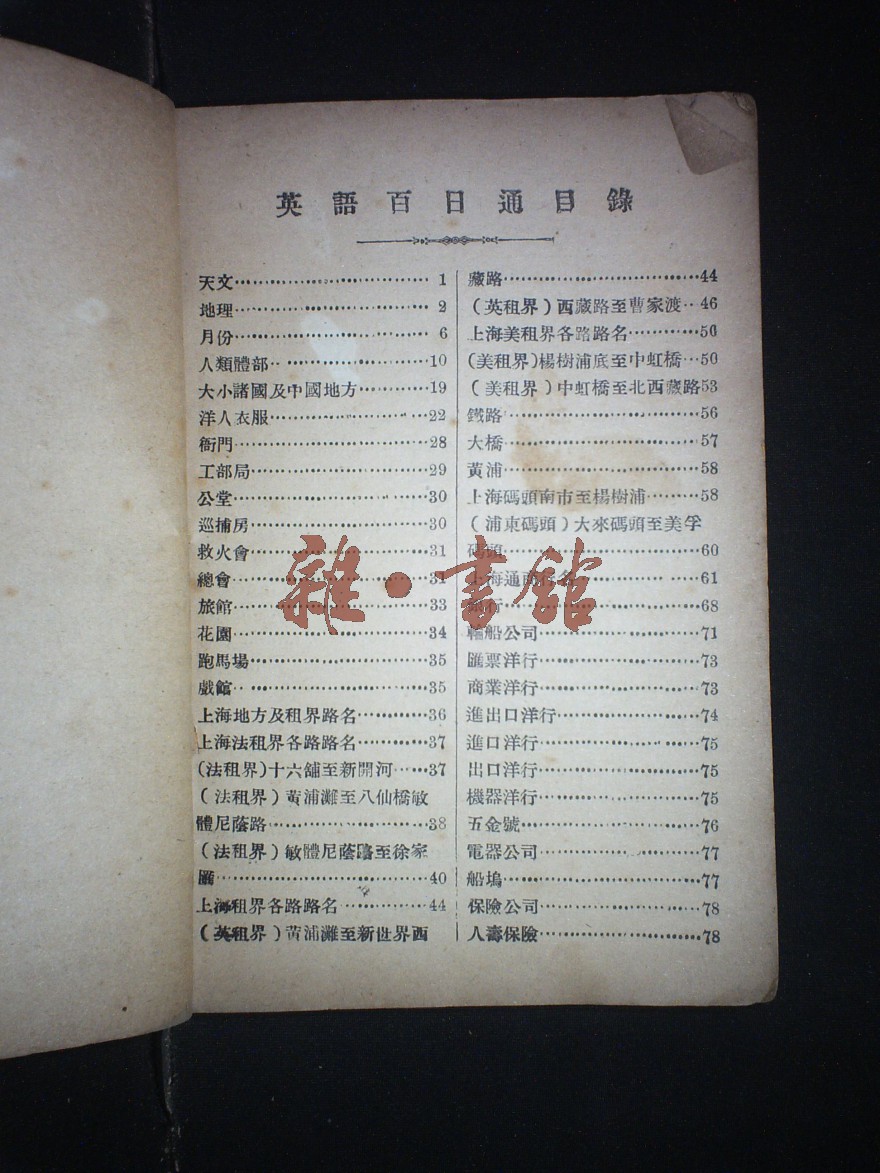 英語百日通目錄
天文 1
地理 2
月份 6
人類體部 10
大小諸國及中國地方 19
洋人衣服 22
衙門 28
工部局 29
公堂 30
巡捕房 30
救火會 31
總會 31
旅館 33
花園 34
跑馬場 35
戲館 35
上海地方及租界路名 36
上海法租界各路路名 37
(法租界)十六舖至新開河 37
(法租界)黃浦灘至八仙橋敏
體尼蔭路 38
(法租界)敏體尼蔭路至徐家
匯 40
上海租界各路路名 44
(英租界)黃浦灘至新世界西
藏路 44
(英租界)西藏路至曹家渡 46
上海美租界各路路名 50
(美租界)楊樹浦底至中虹橋 50
(美租界)中虹橋至北西藏路 53
鐵路 56
大橋 57
黃浦 58
上海碼頭南市至楊樹浦 58
(浦東碼頭)大來碼頭至美孚
碼頭 60
上海通商行名 61
銀行 68
輪船公司 71
匯票洋行 73
商業洋行 73
進出口洋行 74
進口洋行 75
出口洋行 75
機器洋行 75
五金號 76
電器公司 77
船塢 77
保險公司 78
人壽保險 78
雜·書館